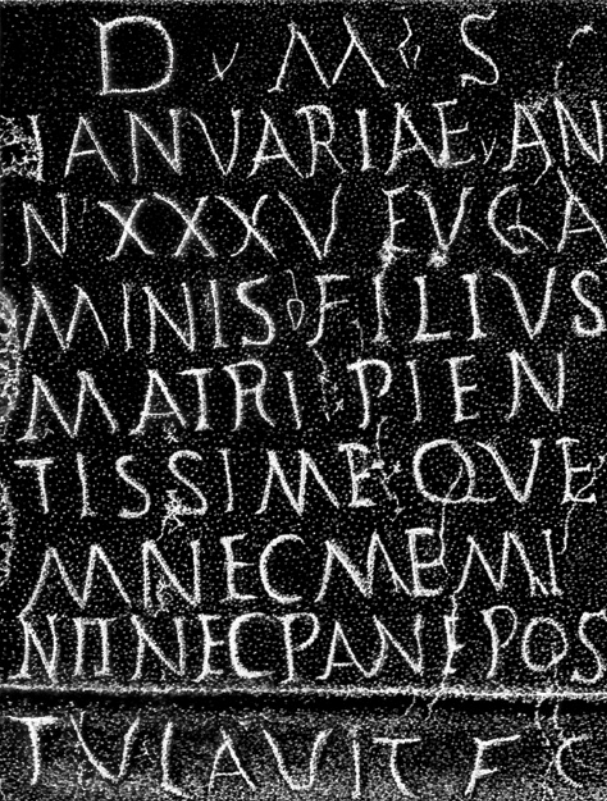 D M S
IANVARIAE AN
N XXXV EVGA
MINIS FILIVS
MATRI PIEN
TISSIME QVE
MNECMEMI
NIINECPANEPOS
TVLAVIT F C